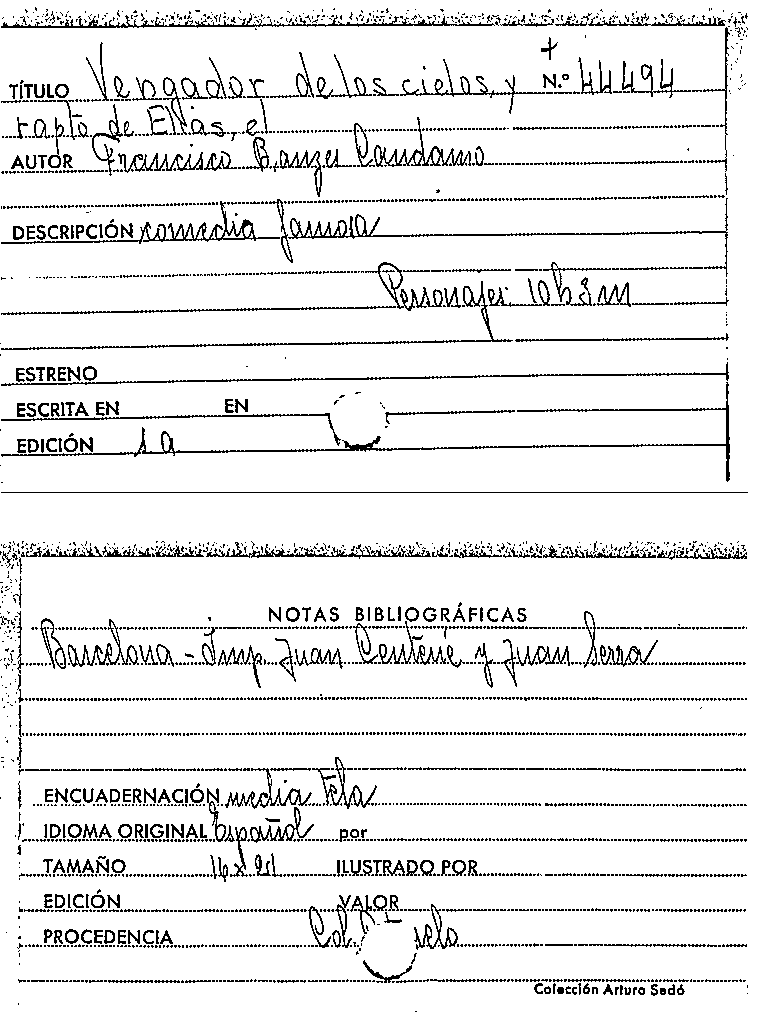 TÍTULO Vengador de los cielos, y N.º 44494
rapto de Elías, el
AUTOR Francisco Banzes Candamo
DESCRIPCIÓN comedia famosa
Personajes: 10 h 3 m
ESTRENO
ESCRITA EN EN
EDICIÓN 1ª
NOTAS BIBLIOGRÁFICAS
Barcelona - Imp. Juan Centené y Juan Serra
ENCUADERNACIÓN media tela
IDIOMA ORIGINAL Español por
TAMAÑO ILUSTRADO POR
EDICIÓN VALOR
PROCEDENCIA Col.
Colección Arturo Sedó